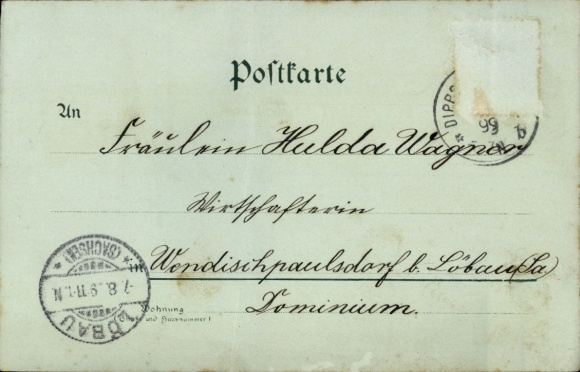 Postkarte
An
Fräulein Hulda Wagner
Wirtschafterin
in Wendischpaulsdorf b. Löbau (Sa
Dominium.
Wohnung
und Hausnummer)
LÖBAU
(SACHSEN)
7.8. 9 11-1.N
DIPPO
99